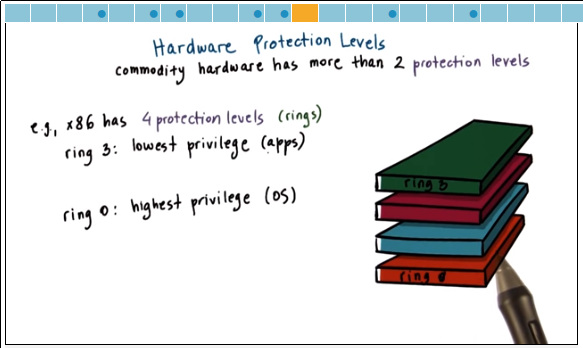 Hardware Protection Levels
commodity hardware has more than 2 protection levels
e.g., x86 has 4 protection levels (rings)
ring 3: lowest privilege (apps)
ring 3
ring 0: highest privilege (OS)
ring 0